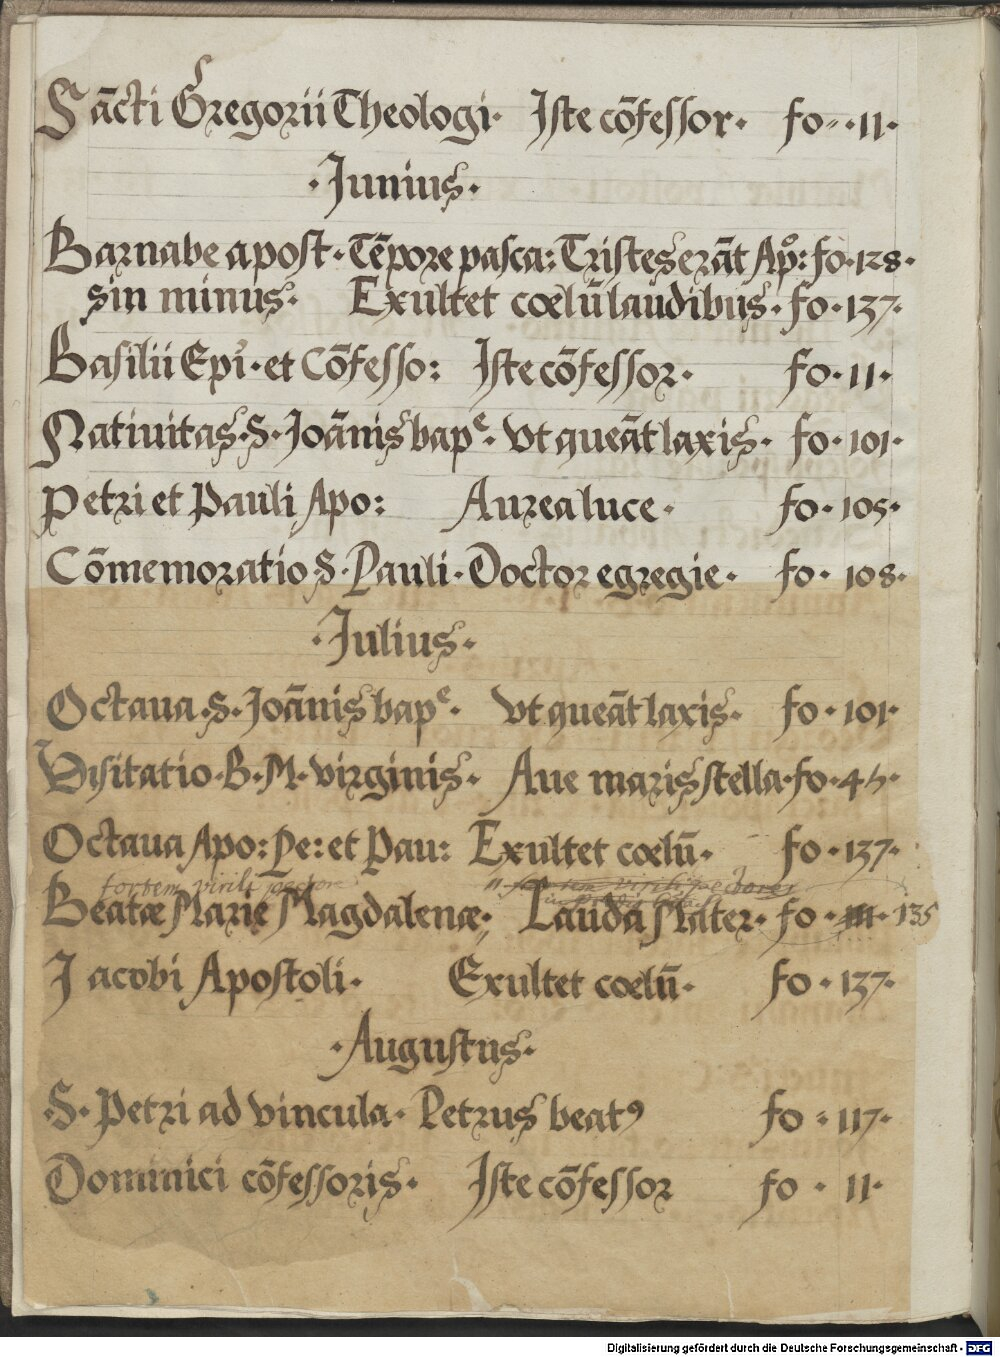 Sācti Gregorii Theologi· Iste cōfessor· fo··11·
·Junius·
Barnabe apost· Tēpore pasca: Tristes erāt Apº: fo·128·
sin minus· Exultet cœlū laudibus· fo·137·
Basilii Epi· et Cōfesso: Iste cōfessor· fo·11·
Natiuitas·S·Joānis bapᵉ· Vt queāt laxis· fo·101·
Petri et Pauli Apo: Aurea luce· fo·105·
Cōmemoratio·S·Pauli· Doctor egregie· fo·108·
·Julius·
Octaua·S·Joānis bapᵉ· Vt queāt laxis· fo·101·
Visitatio·B·M·virginis· Aue maris stella·fo·45·
Octaua Apo: Pe: et Pau: Exultet cœlū· fo·137·
fortem virili pectore virili pectore
Beatæ Marie Magdalenæ; Lauda Mater· fo· 135
Jacobi Apostoli· Exultet cœlū· fo·137·
·Augustus·
·S·Petri ad vincula· Petrus beatꝰ fo·117·
Dominici cōfessoris· Iste cōfessor fo·11·
Digitalisierung gefördert durch die Deutsche Forschungsgemeinschaft - DFG